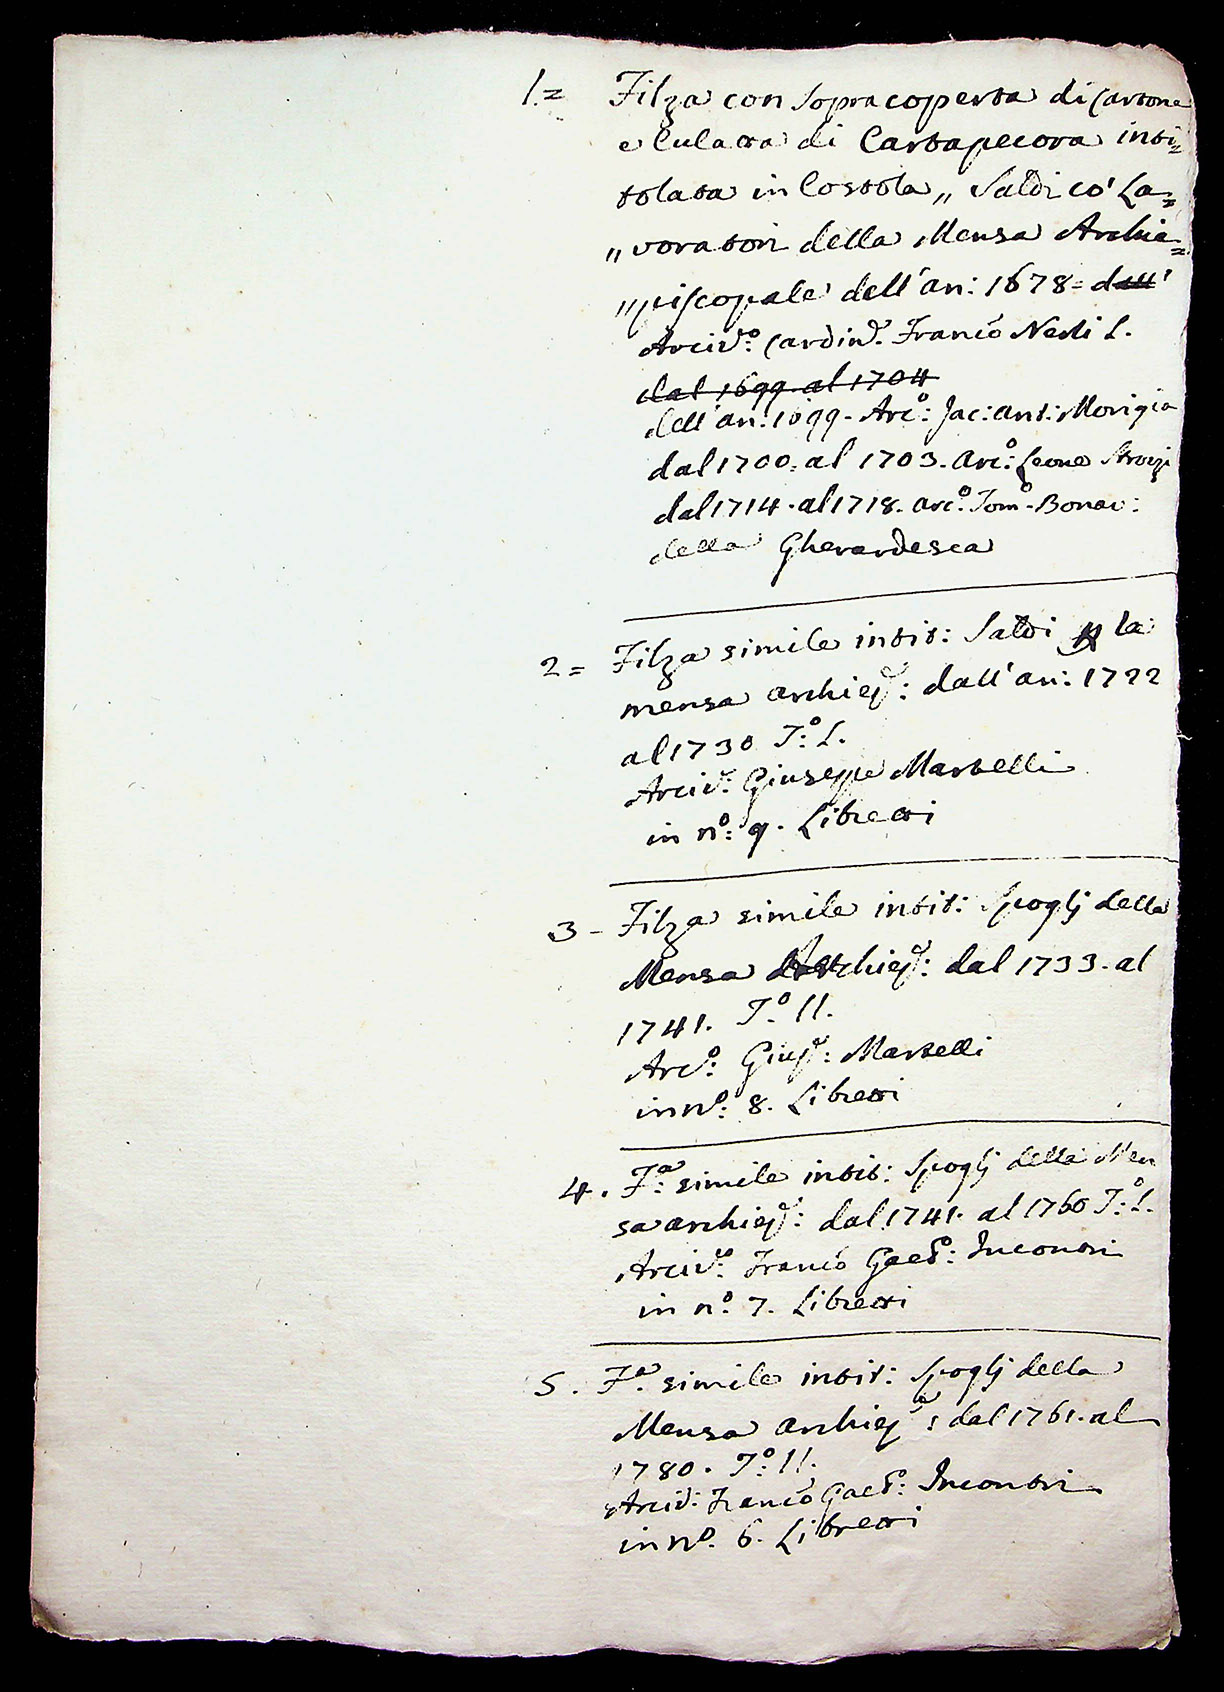 1.= Filza con Sopracoperta di Cartone
e Culatta di Cartapecora inti=
tolata in Costola „ Saldi co' La=
„ voratori della Mensa Archie=
„ piscopale dell'an: 1678= dall'
Arciv.º: Cardin.l Franc.º Nerli S.
dal 1699. al 1704
dell'an: 1699. Arc.º: Jac: Ant: Morigia
dal 1700. al 1703. Arc.º: Leone Strozzi
dal 1714. al 1718. Arc.º Tom.º Bonav:
della Gherardesca
2= Filza simile intit: Saldi p la
mensa archiep: dall'an: 1722
al 1730 T.º I.
Arciv: Giuseppe Martelli
in n.º: 9. Libretti
3 - Filza simile intit: Spoglj della
Mensa Archiep: dal 1733. al
1741. T.º II.
Arc.º: Giusp: Martelli
in n.º: 8. Libretti
4. F.a simile intit: Spoglj della Men
sa archiep: dal 1741. al 1760 T.º: I.
Arciv.º: Franc.º Gaet.º: Incontri
in n.º 7. Libretti
5. F.a simile intit: Spoglj della
Mensa archiep: dal 1761. al
1780. T.º: II.
Arciv: Franc.º Gaet.º: Incontri
in n.º. 6. Libretti